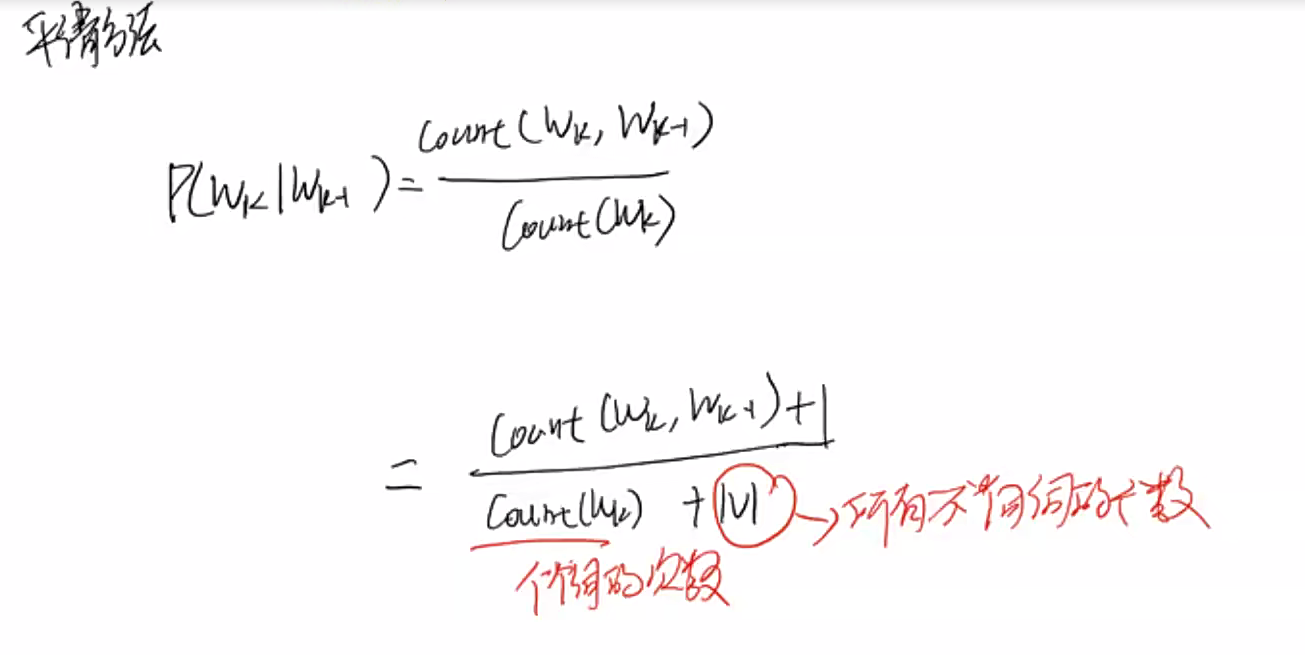 平滑方法
P(Wk|Wk-1) = Count(Wk, Wk-1) / Count(Wk)
= Count(Wk, Wk-1)+1 / Count(Wk) + |V| → 所有不同词的个数
个词的次数